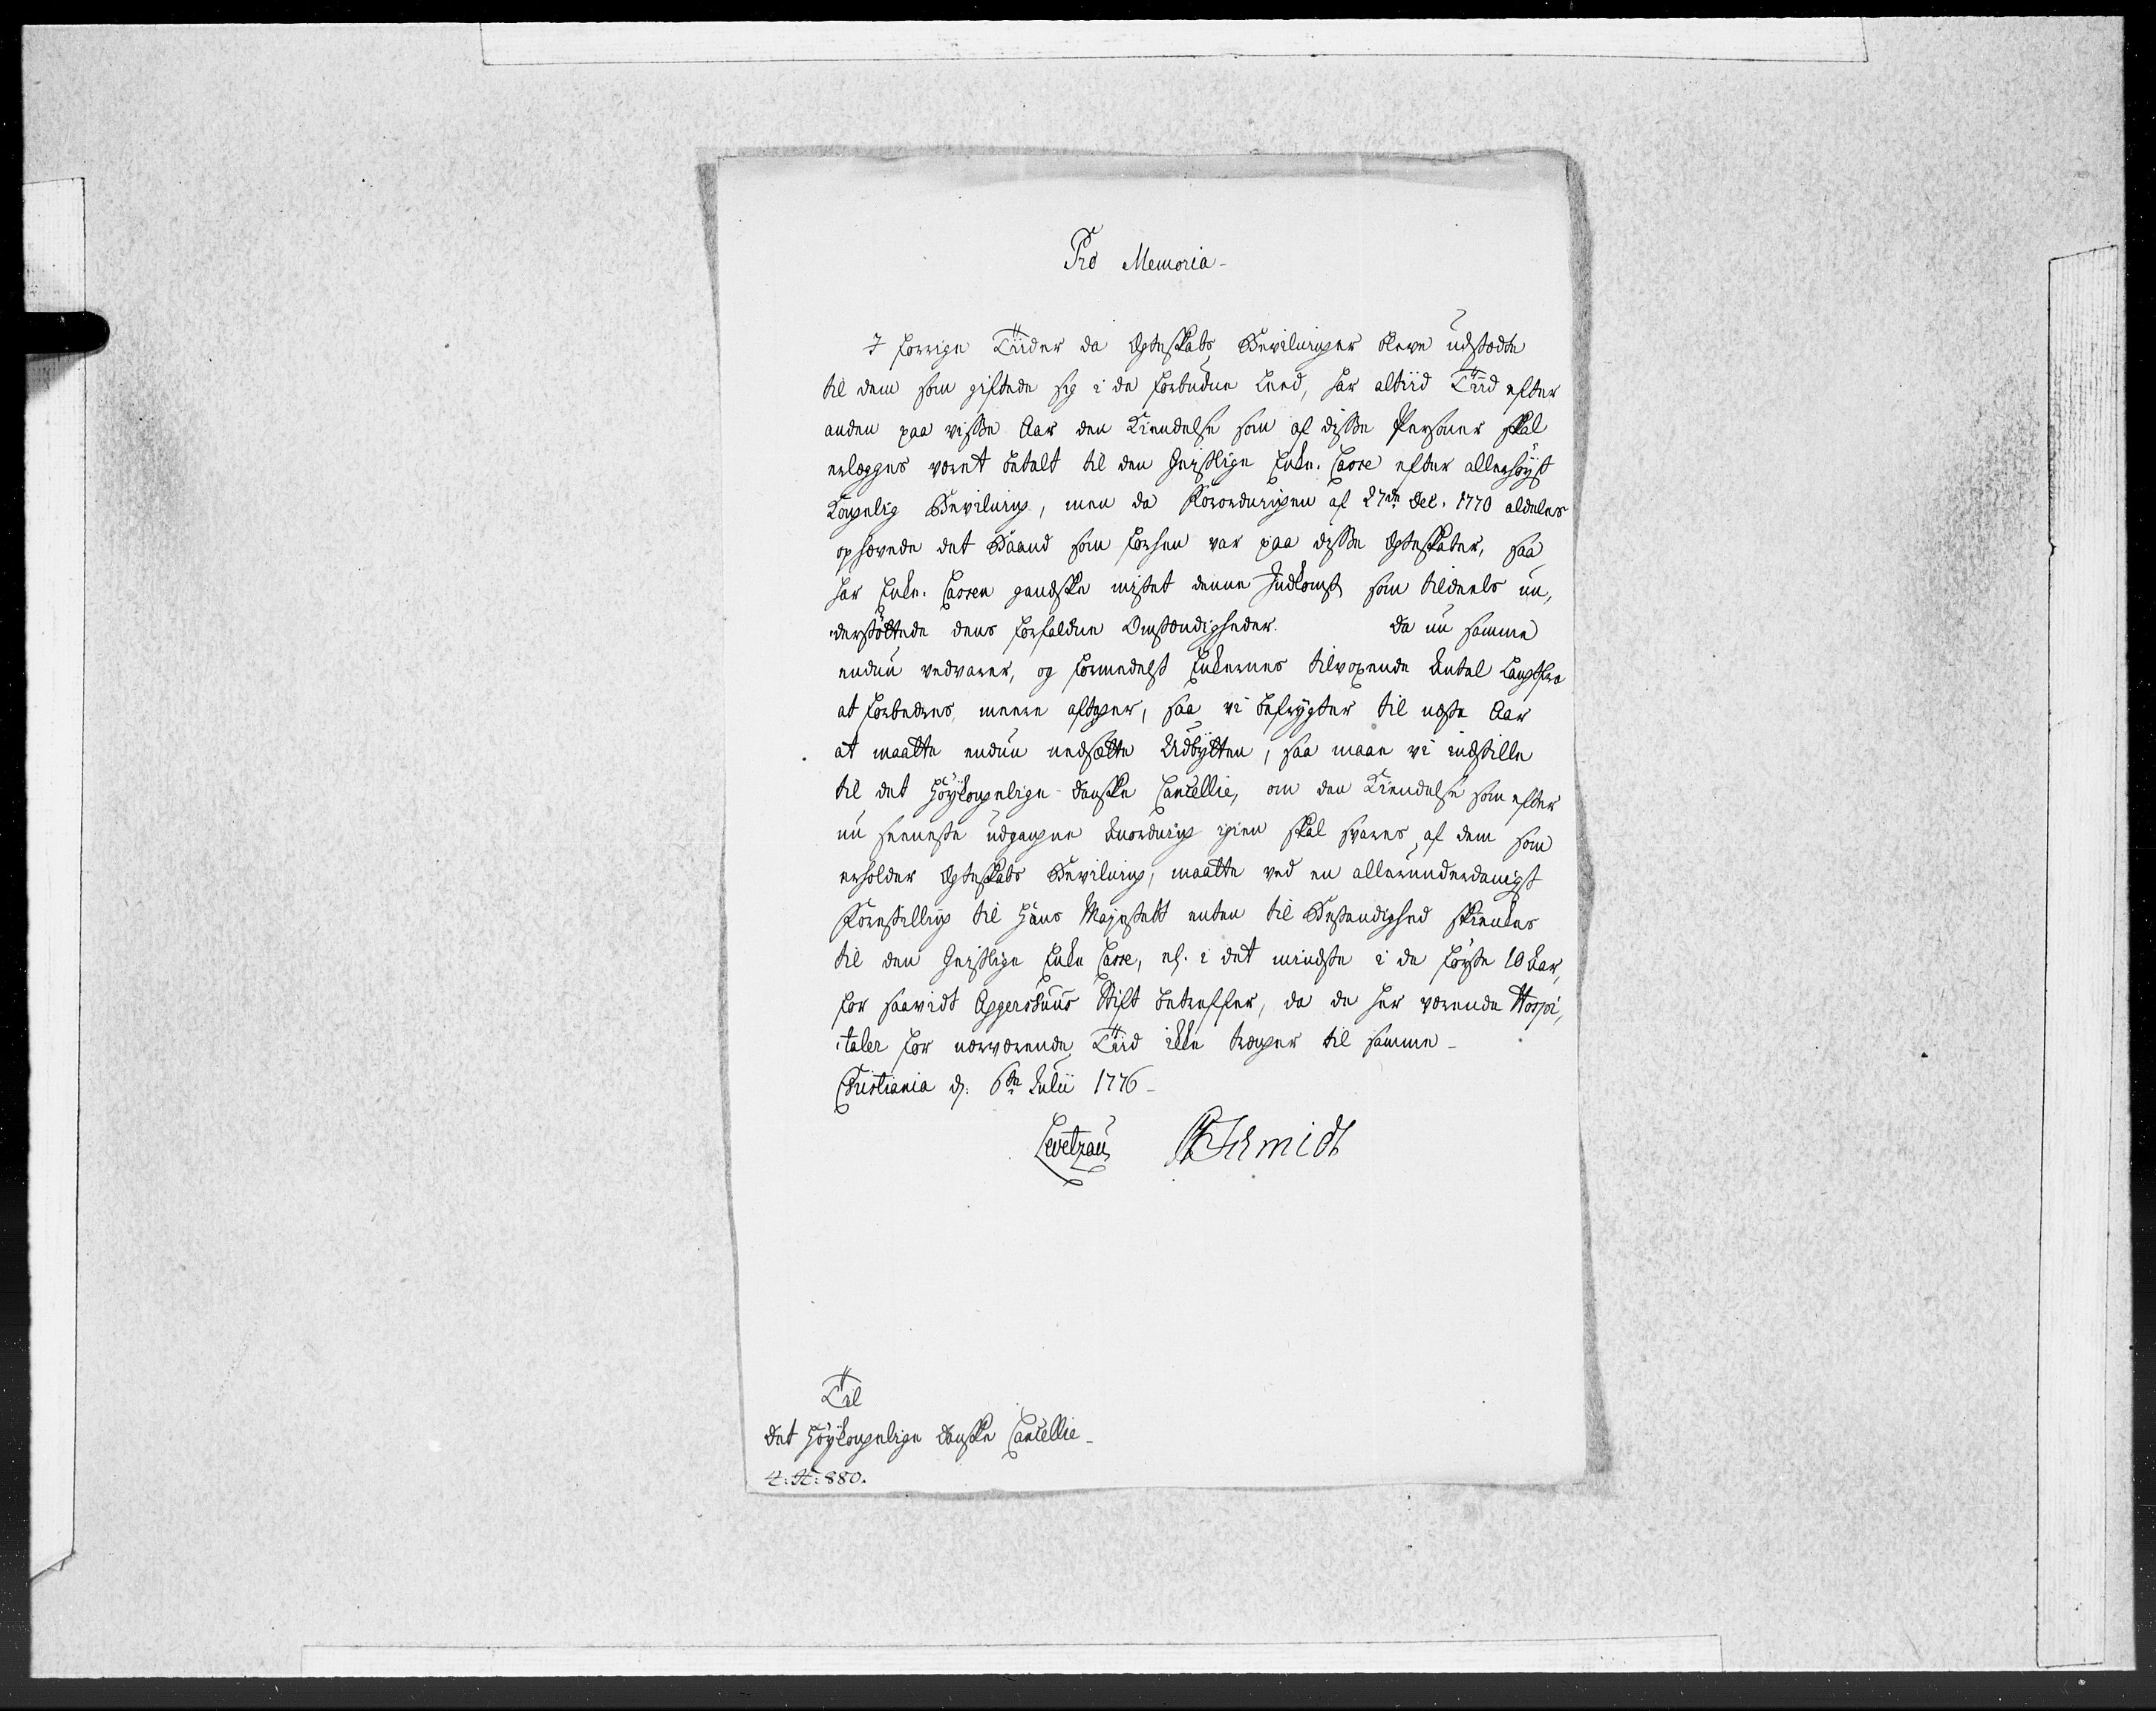 Pro Memoria
I forrige Tiider da Ægteskabs Bevilninger bleve udstædte
til dem som giftede sig i de forbudne Leed, har altiid Tiid efter
anden paa visse Aar den Kiendelse som af disse Personer skal
erlægges været betalt til den Geistlige Enke-Casse efter allerhøyst
Kongelig Bevilning, men da Forordningen af 27de Dec. 1770 aldeles
ophævede det Baand som forhen var paa disse Ægteskaber, saa
har Enke-Cassen gandske mistet denne Indkomst som tildeels un,
derstøttede dens forfaldne Omstændigheder. Da nu samme
endnu vedvarer, og formedelst Enkernes tilvoxende Antal langt fra
at forbedres, meere aftager, saa vi befrygter til næste Aar
at maatte endnu nedsætte Udbytten, saa maae vi indstille
til det Høykongelige danske Cancellie, om den Kiendelse som efter
nu seeneste udgangne Anordning igien skal svares af dem som
erholder Ægteskabs Bevilning, maatte ved en allerunderdanigst
Forestilling til Hans Majestætt enten til Bestandighed skienkes
til den Geistlige Enke Casse, el. i det mindste i de første 10 Aar,
for saavidt Aggershuus Stift betreffer, da de her værende Hospi,
taler for nærværende Tiid ikke trænger til samme
Christiania d. 6te Julii 1776
Levetzau Schmidt
Til
det Høykongelige danske Cancellie
880.